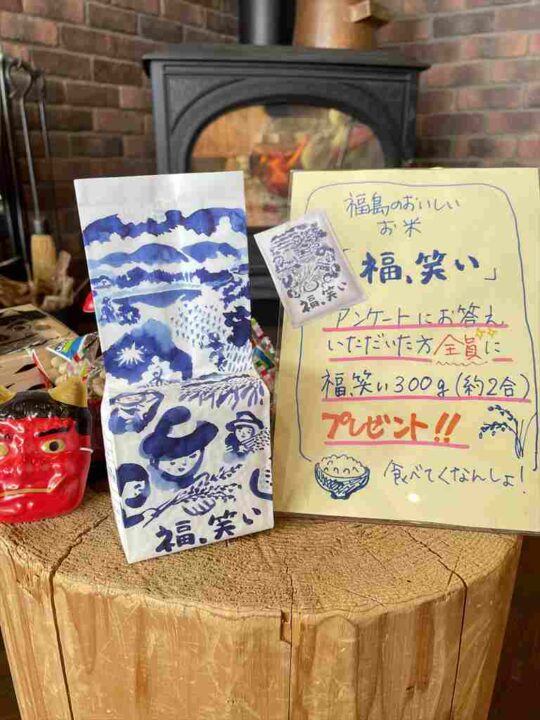 福、笑い
福島のおいしい
お米
「福、笑い」
アンケートにお答え
いただいた方全員に
福、笑い300g(約2合)
プレゼント!!
食べてくなんしょ!
福、笑い